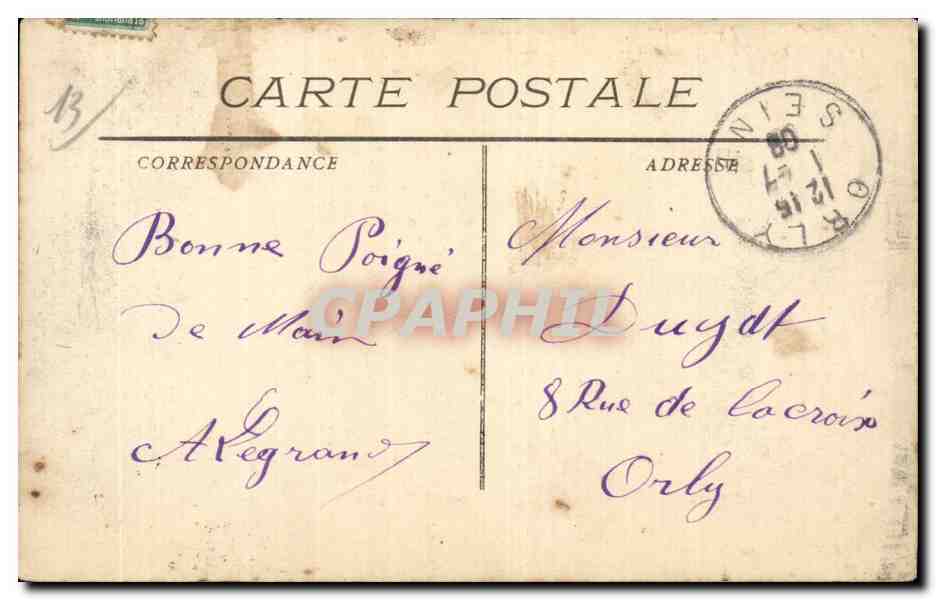 13
CARTE POSTALE
CORRESPONDANCE
ADRESSE
ORLY
SEINE
12 15
08
Bonne Poigné
de Main
A Legrand
Monsieur
Duydt
8 Rue de Lacroix
Orly
CPAPHIL